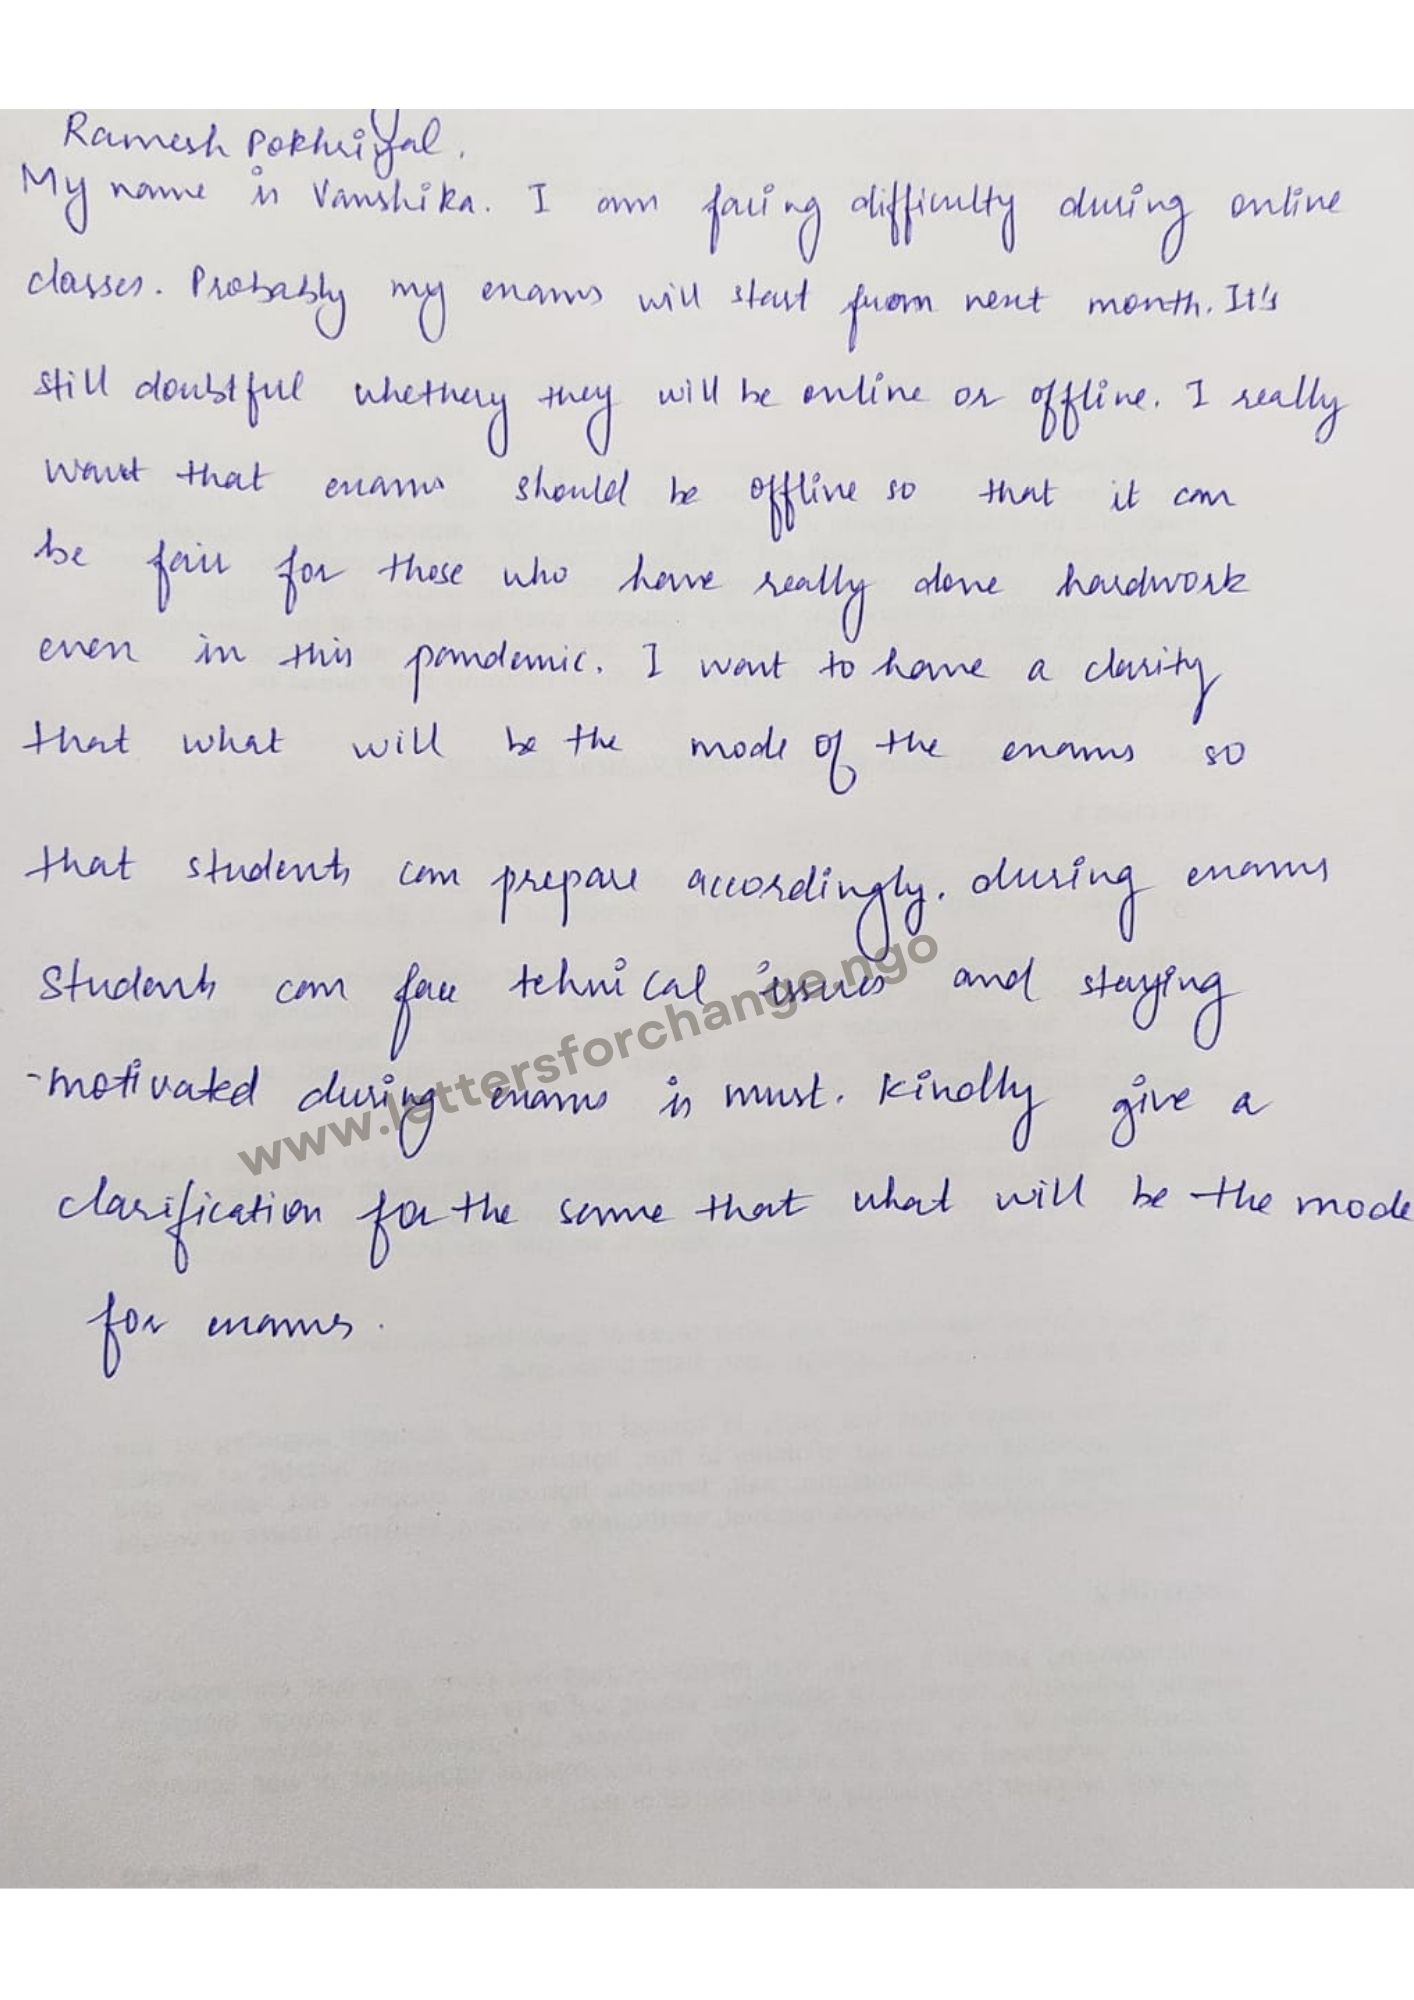 Ramesh Pokhriyal.
My name is Vanshika. I am facing difficulty during online
classes. Probably my exams will start from next month. It's
still doubtful whethery they will be online or offline. I really
want that exams should be offline so that it can
be fair for those who have really done hardwork
even in this pandemic. I want to have a clarity
that what will be the mode of the exams so
that students can prepare accordingly. during exams
Students can face tehnical issues and staying
-motivated during exams is must. Kindly give a
clarification for the same that what will be the mode
for exams.
www.lettersforchange.ngo